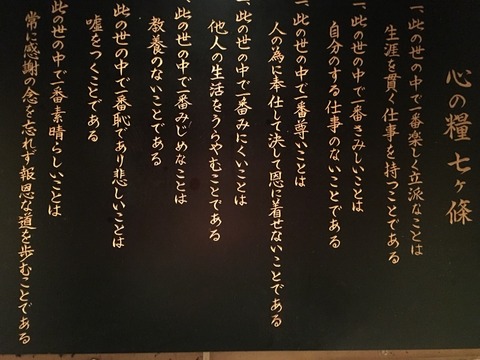 心の糧 七ヶ條
一、此の世の中で一番楽しく立派なことは
生涯を貫く仕事を持つことである
一、此の世の中で一番さみしいことは
自分のする仕事のないことである
一、此の世の中で一番尊いことは
人の為に奉仕して決して恩に着せないことである
一、此の世の中で一番みにくいことは
他人の生活をうらやむことである
、此の世の中で一番みじめなことは
教養のないことである
此の世の中で一番恥であり悲しいことは
嘘をつくことである
此の世の中で一番素晴らしいことは
常に感謝の念を忘れず報恩な道を歩むことである